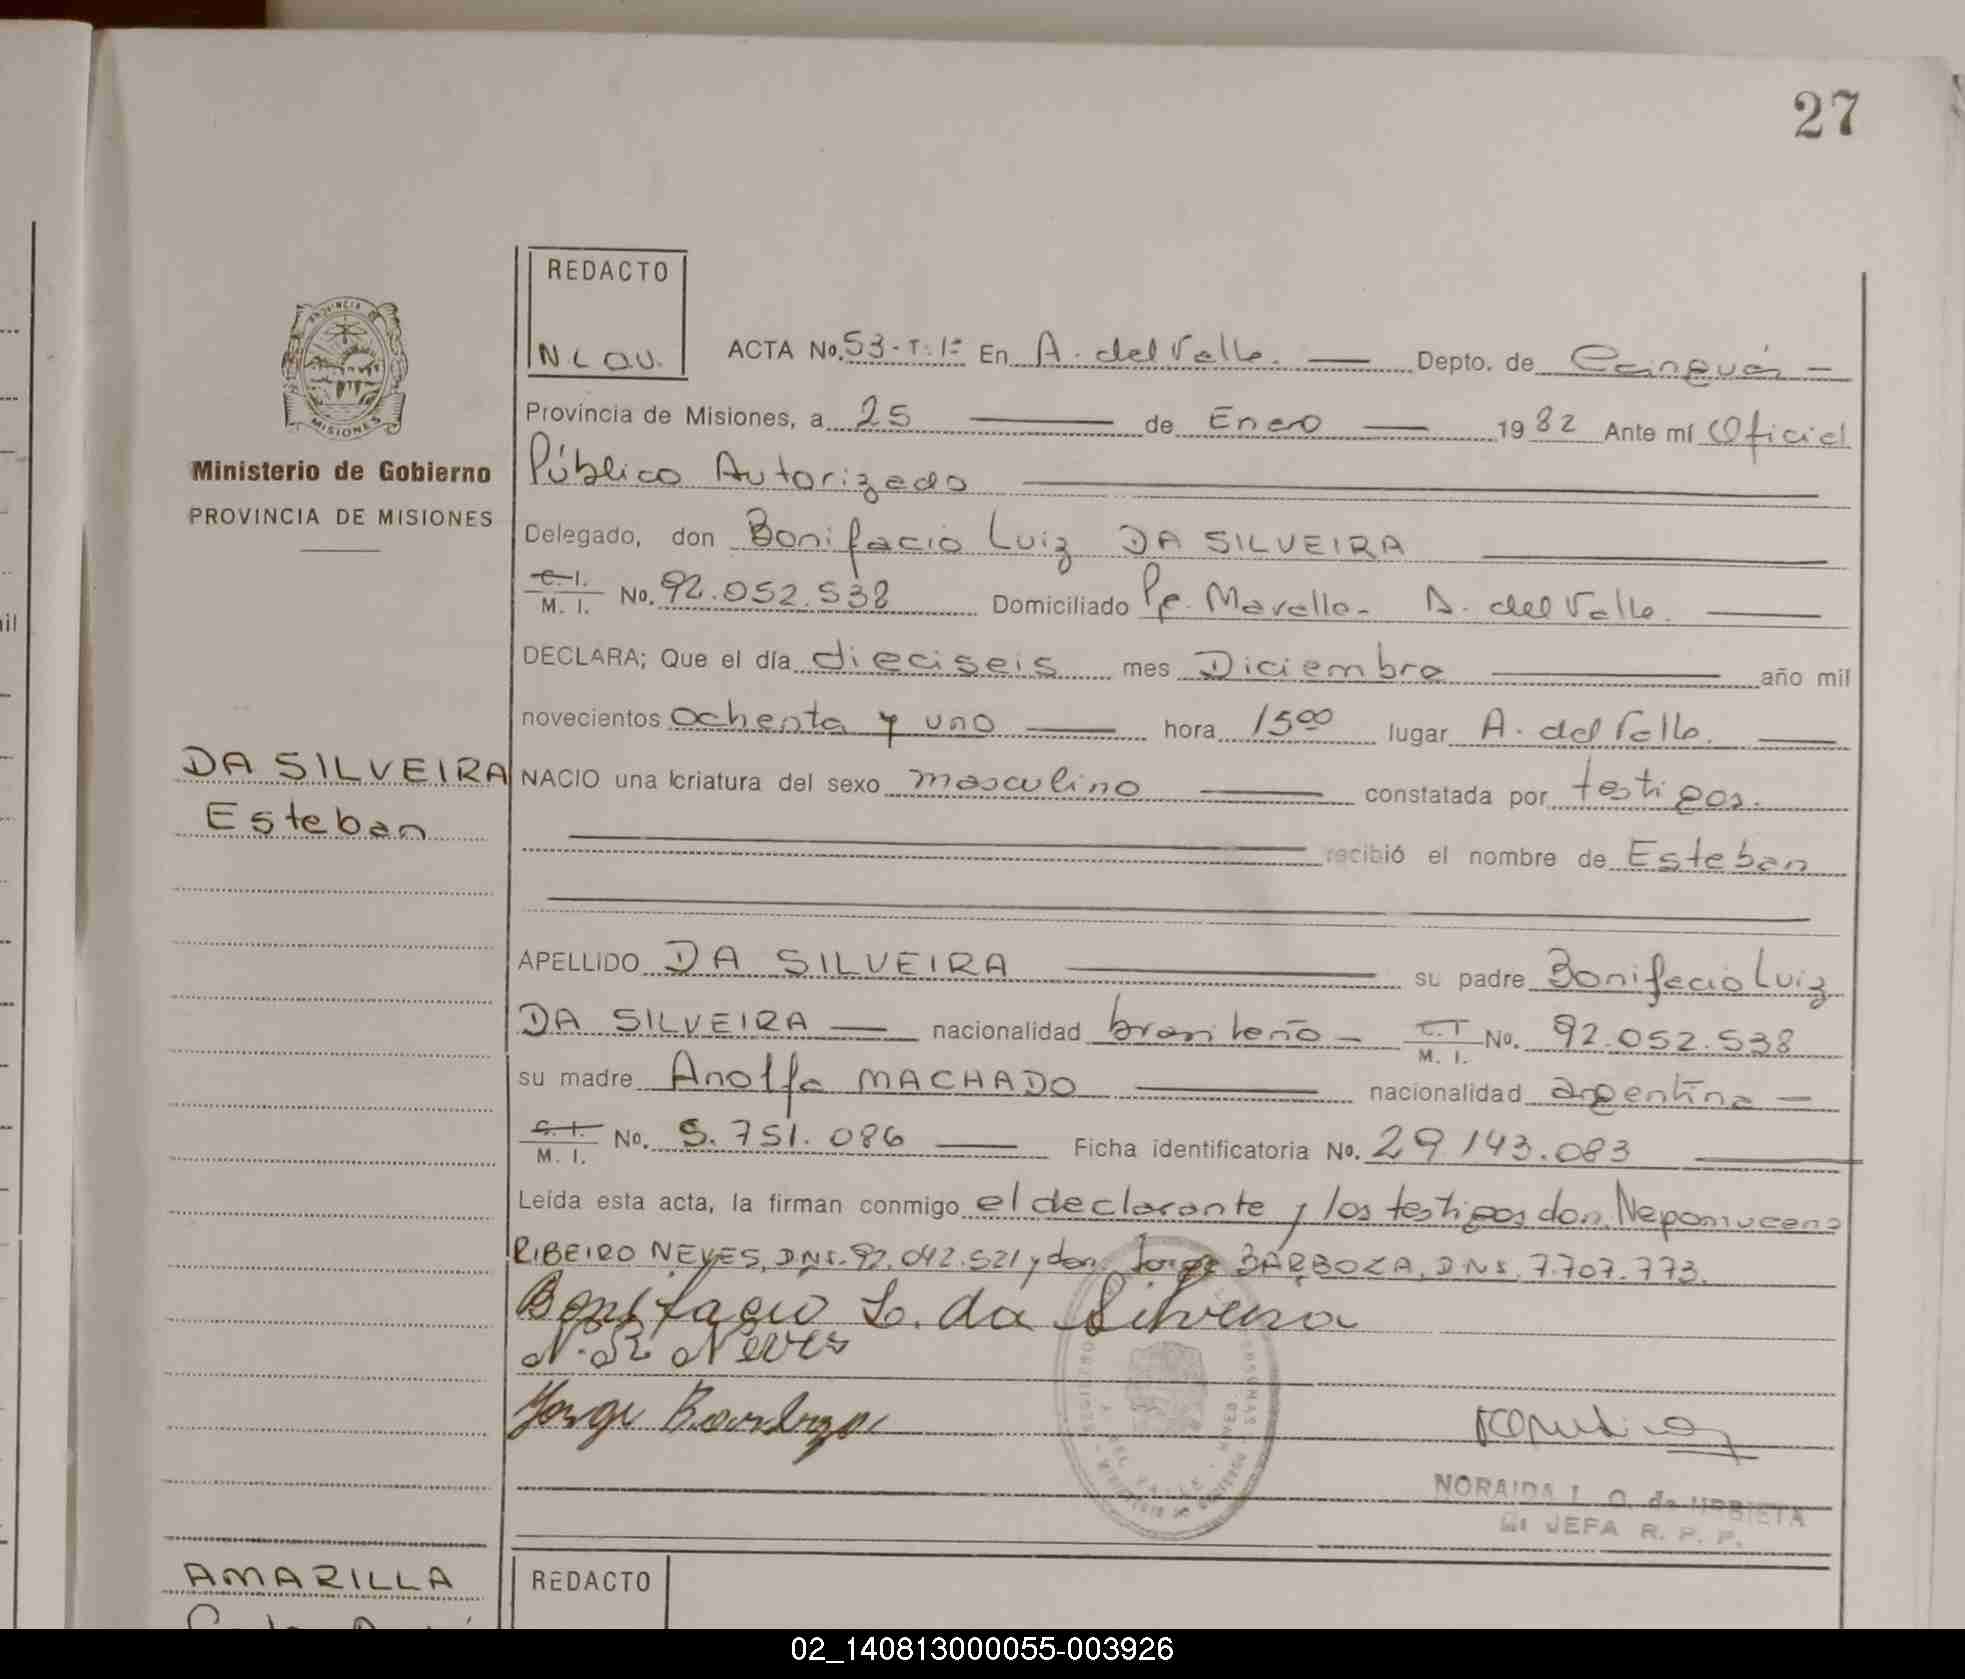 27
REDACTO
N L O U.
ACTA No. 53-T:1º En A. del Valle. Depto. de Cainguás
Provincia de Misiones, a 25 de Enero 1982 Ante mí Oficial
Público Autorizado
Ministerio de Gobierno
PROVINCIA DE MISIONES
Delegado, don Bonifacio Luiz DA SILVEIRA
C.I. M. I. No. 92.052.538 Domiciliado A. del Valle.
DECLARA; Que el día dieciseis mes Diciembre año mil
novecientos ochenta y uno hora 1500 lugar A. del Valle.
DA SILVEIRA
Esteban
NACIO una criatura del sexo masculino constatada por testigos.
recibió el nombre de Esteban
APELLIDO DA SILVEIRA su padre Bonifacio Luiz
DA SILVEIRA nacionalidad brasileño C.I M. I. No. 92.052.538
su madre Anolfa MACHADO nacionalidad argentina
C.I. M. I. No. 5.751.086 Ficha identificatoria No. 29.143.083
Leída esta acta, la firman conmigo el declarante y los testigos don Nepomuceno
RIBEIRO NEVES, DNI. 92.042.521 y don Jorge BARBOZA, DNI. 7.707.773.
Bonifacio L. da Silveira
N. R Neves
Jorge Barboza
NORAIDA L. O. de URBIETA
JEFA R. P. P.
AMARILLA
REDACTO
02_140813000055-003926